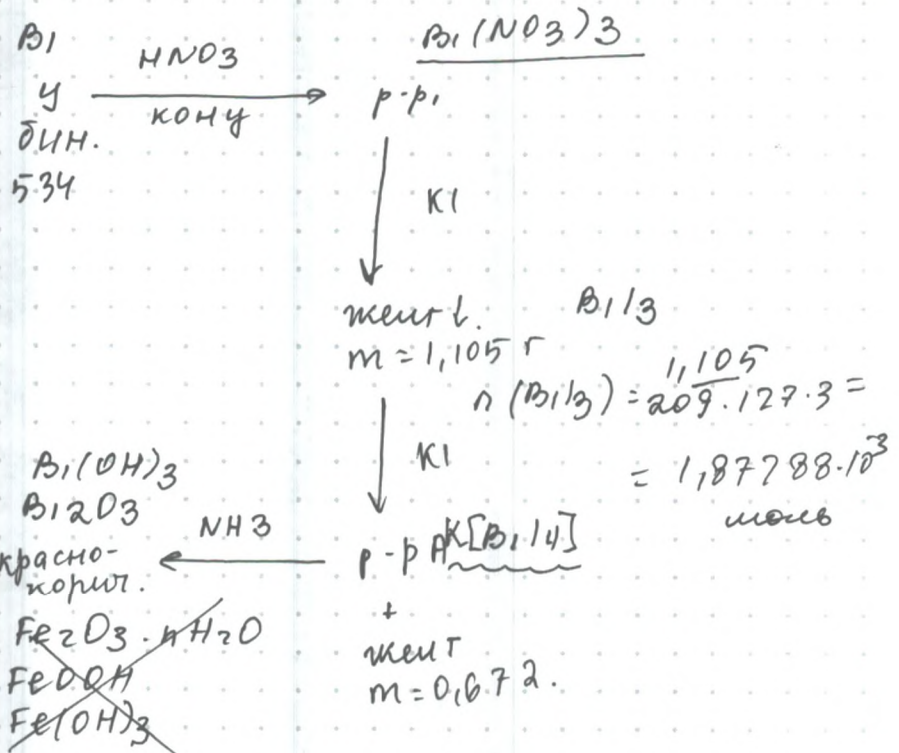 Bi
У
бин.
534
HNO3
конц
Bi(NO3)3
р-р,
KI
желт ↓.
m = 1,105 г
BiI3
n (BiI3) = 1,105
209.127.3 =
= 1,87788·10³
моль
KI
р-р А K[BiI4]
+
желт
m = 0,672.
NH3
Bi(OH)3
Bi2O3
красно-
корич.
Fe2O3·nH2O
FeOOH
Fe(OH)3